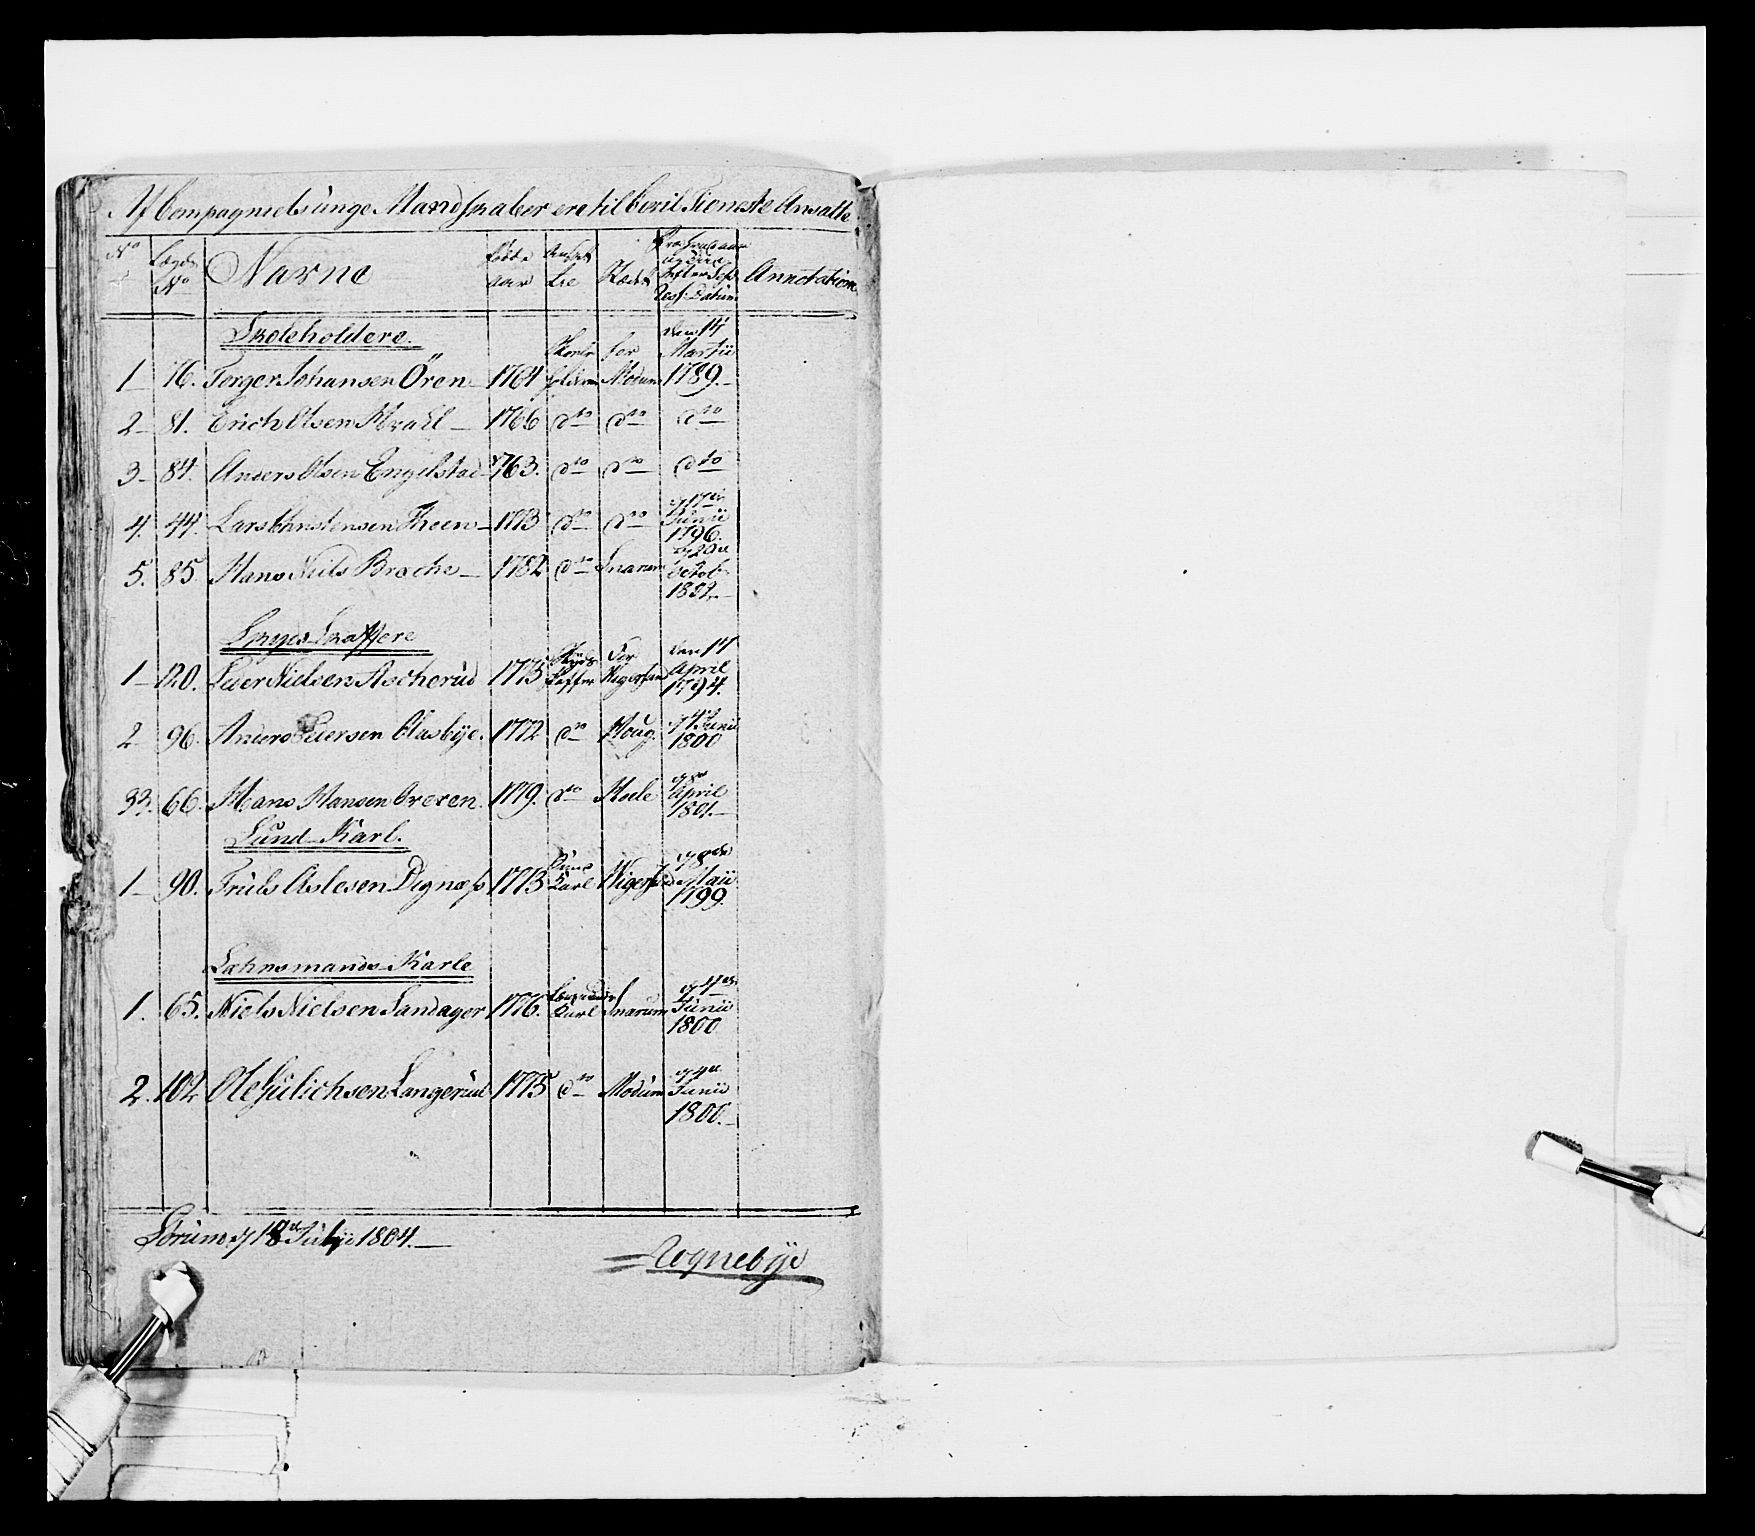 Af Compagniets unge Mandskaber ere til Civil Tieneste Ansatte
No Lægds No Navne Føde aar Ansatte Stæds Annotation
Skoleholdere
1 76. Torger Johansen Ören 1764 Skole holder for Modum den 14 Martii 1789.
2 81. Erich Olsen Kraul 1766 do do do
3 84. Anders Olsen Engelstad 1763. do do do
4. 44. Lars Christensen Theen 1773 do do 17de Junii 1796.
5. 85. Hans Niels Bræche 1782 do Snarum 20de Octob
Skyds Skaffere
1 120. Peer Nielsen Ascherud 1775 Skyds skaffer for Sigersfund den 14 April 1794.
2 96. Anders Peersen Clasbye. 1772 do Houg. Junii 1800
3. 66. Hans Hansen Orexen 1779. do Hole April 1801.
Sund Karl.
1 90. Truls Aslesen Dignæs 1773 Sund Karl 8de Maii 1799
Lehnsmands Karle
1. 65. Niels Nielsen Sandager 1776. Lensmands Karl Snarum 4de Junii 1800
2. 102 Ole Gulichsen Langerud 1775 do Modum 4de Junii 1800.
18de Julii 1804.
Rognebye